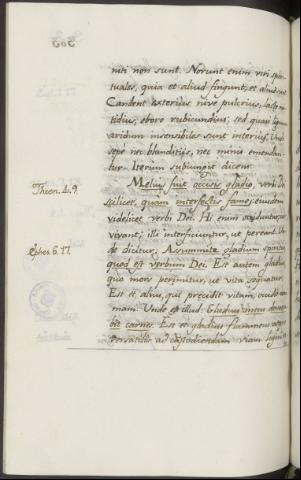 niti non sunt. Norunt enim viri spiri-
tuales, quia et aliud fingunt, et aliud sunt.
Candent exterius nive pulcrius, lacte ni-
tidius, ebore rubicundius; sed quasi lignum
aridum insensibiles sunt interius. Unde
sepe nec blanditijs, nec minis emendan-
tur. Iterum subiungit dicens:
Melius fuit occisis gladio, verbi Dei
scilicet, quam interfectis fame, eiusdem
videlicet verbi Dei. Hi enim occiduntur, ut
vivant; illi interficiuntur, ut pereant. Un-
de dicitur, Assummite gladium spiritus,
quod est verbum Dei. Est autem gladius,
quo mors perimitur, ut vita sequatur.
Est et alius, qui precedit vitam, occidit
mam. Unde est illud: Gladius meus devora-
bit carnes. Est et gladius flammeus atque
versatilis ad custodiendam viam ligni
Thren. 4. 9.
Ephes. 6. 17.